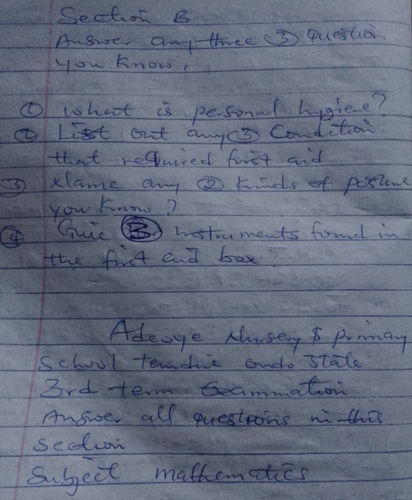 Section B
Answer any three ③ question
you know.
① What is personal hygiene?
② List out any ③ Condition
that required first aid
③ Name any ② kinds of posture
you know?
④ Give ③ instruments found in
the first aid box?
Adeoye Nursery & primary
School ondo State
3rd term Examination
Answer all questions in this
section
Subject mathematics